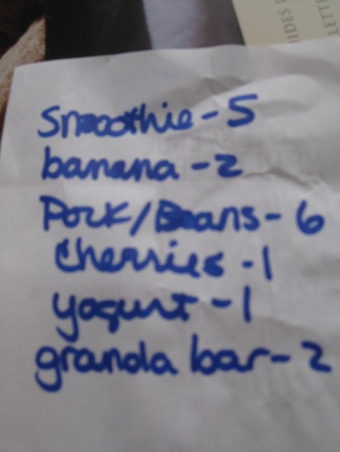 LETTE
IDES E
Smoothie - 5
banana - 2
Pork/Beans - 6
Cherries - 1
yogurt - 1
granola bar - 2